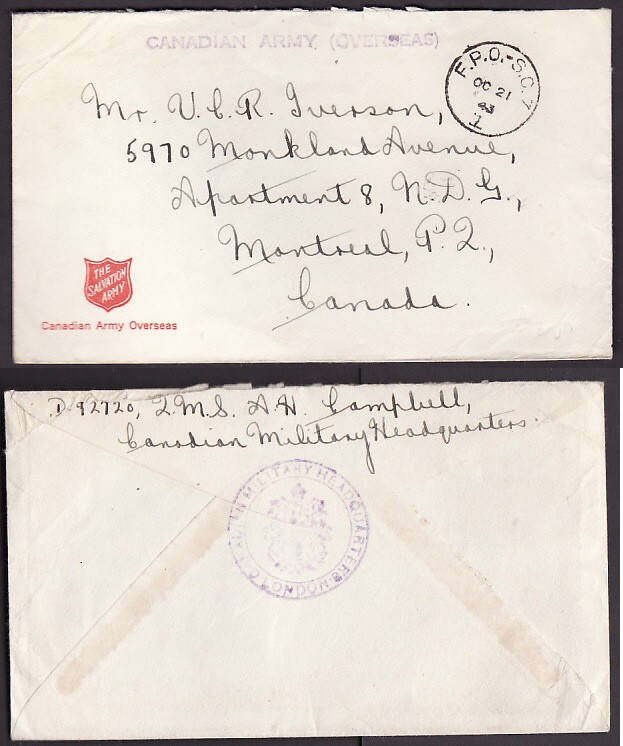 CANADIAN ARMY (OVERSEAS)
F.P.O.-S.C.7
OC 21
43
T
Mr. V.C.R. Iverson,
5970 Monkland Avenue,
Apartment 8, N.D.G.,
Montreal, P.Q.,
Canada.
THE
SALVATION
ARMY
Canadian Army Overseas
D.92720, Q.M.S. A.H. Campbell,
Canadian Military Headquarters.
CANADIAN MILITARY HEADQUARTERS
LONDON